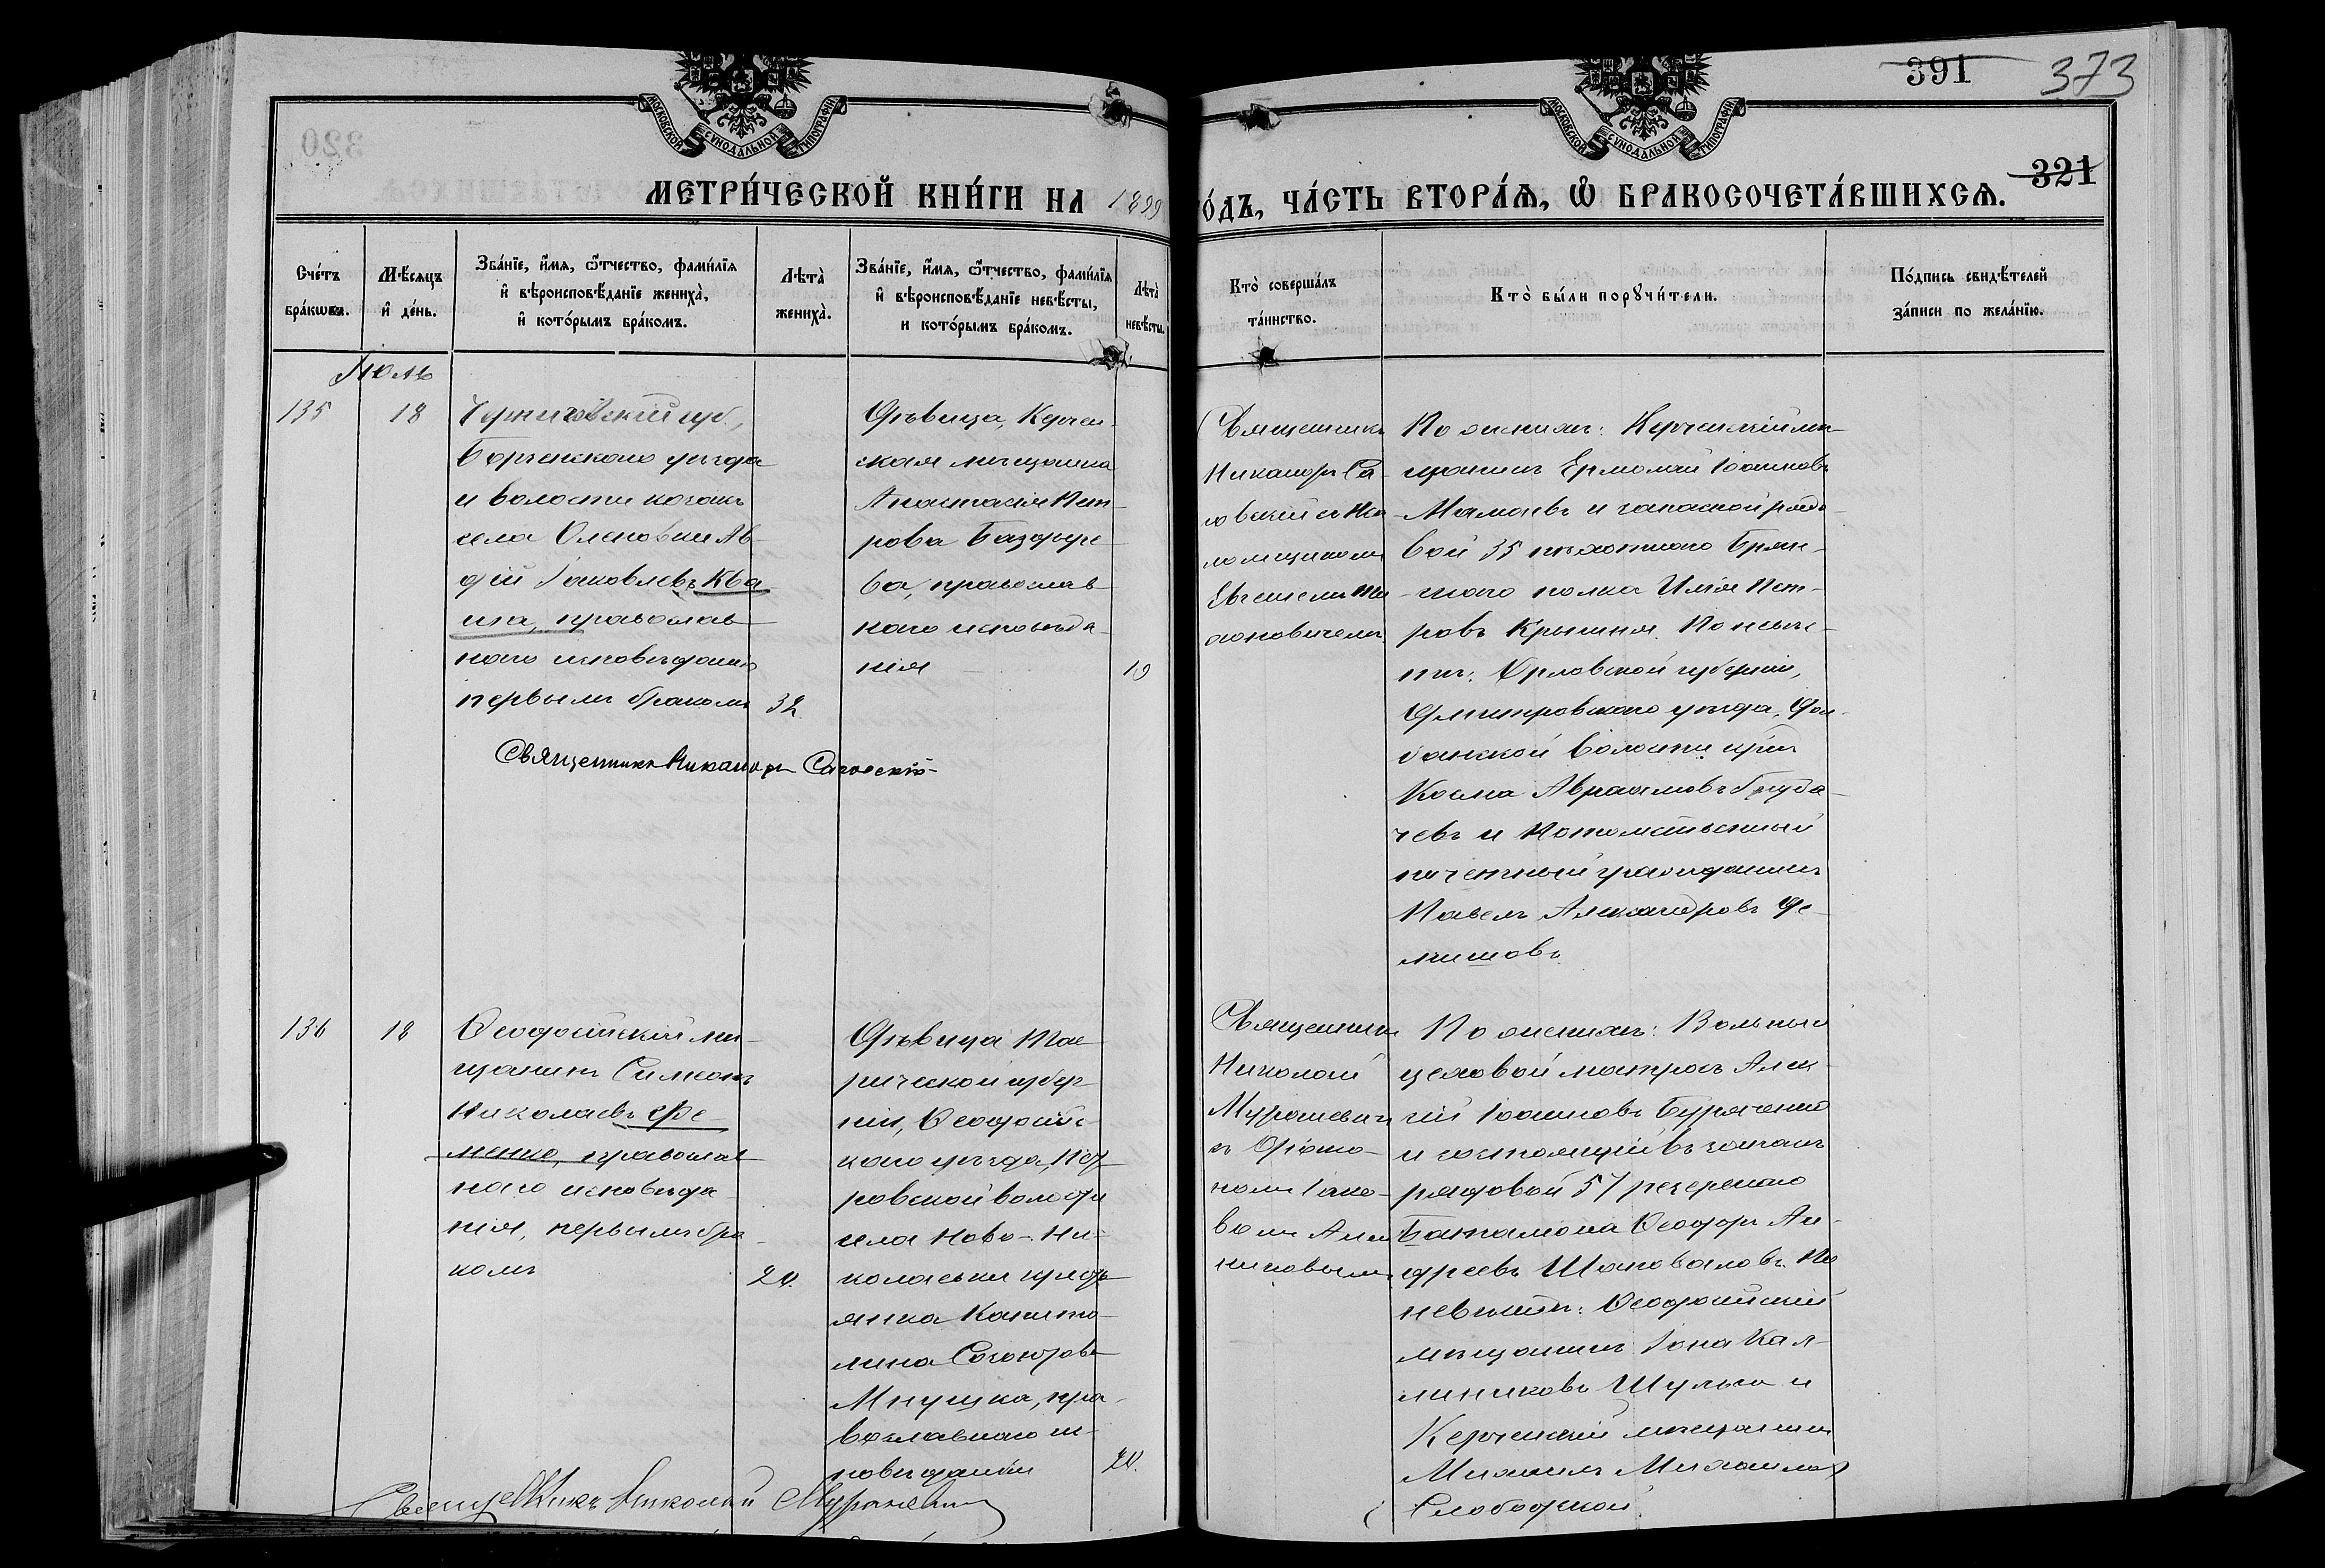 391
373
МОСКОВСКОЙ СѴНОДАЛЬНОЙ ТИПОГРАФІИ
МОСКОВСКОЙ СѴНОДАЛЬНОЙ ТИПОГРАФІИ
320
321
МЕТРИ́ЧЕСКОЙ КНИ́ГИ НА 1899
ГО́ДЪ, ЧА́СТЬ ВТОРА́Ѧ, Ѡ БРАКОСОЧЕТА́ВШИХСѦ.
Сче́тъ
бра́кѡвъ.
Мѣ́сяцъ
и҆ де́нь.
Зва́нїе, и҆́мѧ, ѻ҆́тчество, фами́лїѧ
и҆ вѣроисповѣ́данїе жениха̀,
и҆ кото́рымъ бра́комъ.
Лѣта̀
жениха̀.
Зва́нїе, и҆́мѧ, ѻ҆́тчество, фами́лїѧ
и҆ вѣроисповѣ́данїе невѣ́сты,
и кото́рымъ бра́комъ.
Лѣта̀
невѣ́сты.
Кто̀ соверша́лъ
та́инство.
Кто̀ бы́ли порꙋчи́тели.
По́дпись свидѣ́телей
за́писи по жела́нїю.
Іюль
135
18
Черниговской губ.,
Борзенскаго уѣзда
и волости козакъ
села Оленовки Ав-
дій Іаковлевъ Ква-
ша, православ-
наго исповѣданія
первымъ бракомъ
32
Дѣвица, Керчен-
ская мѣщанка
Анастасія Пет-
рова
ва, православ-
наго исповѣда-
нія
19
Священникъ
Никаноръ Са-
говскій съ Пса-
ломщикомъ
Евгеніемъ
По женихѣ: Керченскій мѣ-
щанинъ Ермолай Іоанновъ
Мамаевъ и запасной рядо-
вой 35 пѣхотнаго Брян-
скаго полка Илія Пет-
ровъ По невѣс-
тѣ: Орловской губерніи,
Дмитровскаго уѣзда,
волости кр-нъ
Косма Авраамовъ
чевъ и Потомственный
почетный гражданинъ
Павелъ Александровъ Фе-
Священникъ Никаноръ Саговскій
136
18
Ѳеодосійскій мѣ-
щанинъ Симеонъ
Николаевъ Фе-
менко, православ-
наго исповѣда-
нія, первымъ бра-
комъ
20.
Дѣвица Тав-
рической губер-
ніи, Ѳеодосійс-
каго уѣзда, Пет-
ровской волости
села Ново-Ни-
колаевки кресть-
янка Капито-
лина Созонтова
Мнушка, пра-
вославнаго ис-
повѣданія
20.
Священникъ
Николай
Мураневичъ
съ Діако-
номъ Іако-
вомъ Анни-
ковымъ
По женихѣ: Вольный
цеховой матросъ Алек-
сій Іоанновъ
и состоящій въ запасѣ
рядовой 57 резервнаго
Баталіона Ѳеодоръ Ан-
дреевъ Шаповаловъ. По
невѣстѣ: Ѳеодосійскій
мѣщанинъ Іона Кал-
линиковъ Шульга и
Керченскій мѣщанинъ
Михаилъ Михаиловъ
Слободской.
Священникъ Николай Мураневичъ